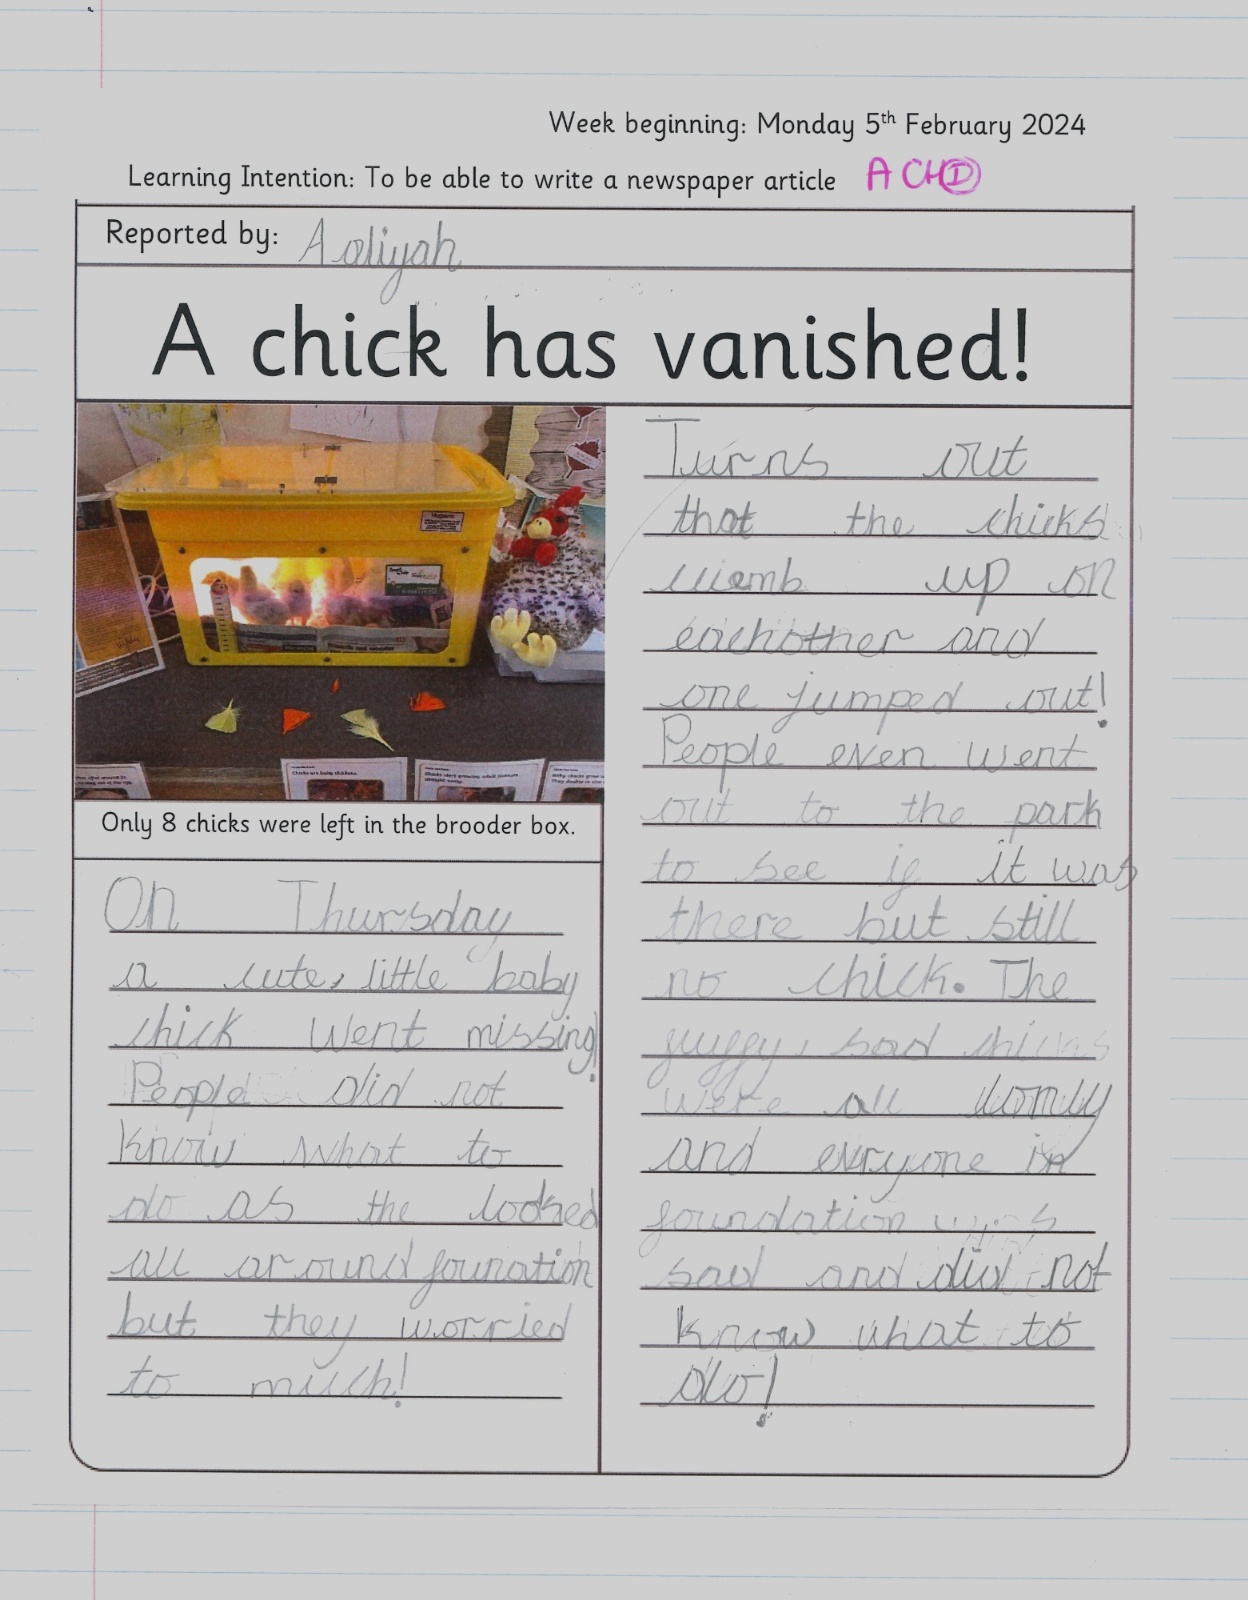 Week beginning: Monday 5th February 2024
Learning Intention: To be able to write a newspaper article A CHI
Reported by: Aaliyah
A chick has vanished!
Only 8 chicks were left in the brooder box.
On Thursday
a cute, little baby
chick went missing!
People did not
know what to
do as the looked
all around founation
but they worried
to much!
Turns out
that the chicks
up on
eachother and
one jumped out!
People even went
out to the park
to see if it was
there but still
no chick. The
fuffy, sad chicks
were all
and everyone in
foundation was
sad and did not
know what to
do!